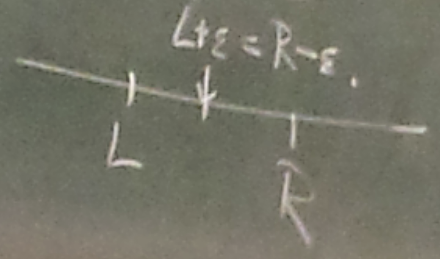 L+ε = R-ε.
L
R